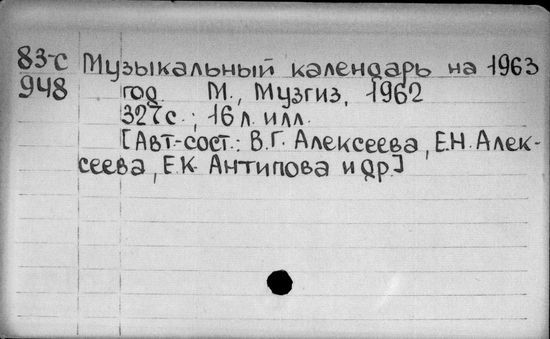 83-С Музыкальный календарь на 1963
948 год М., Музгиз, 1962
327с.; 16л. илл.
[Авт.-сост.: В.Г. Алексеева, Е.Н. Алек-
сеева, Е.К. Антипова и др.]